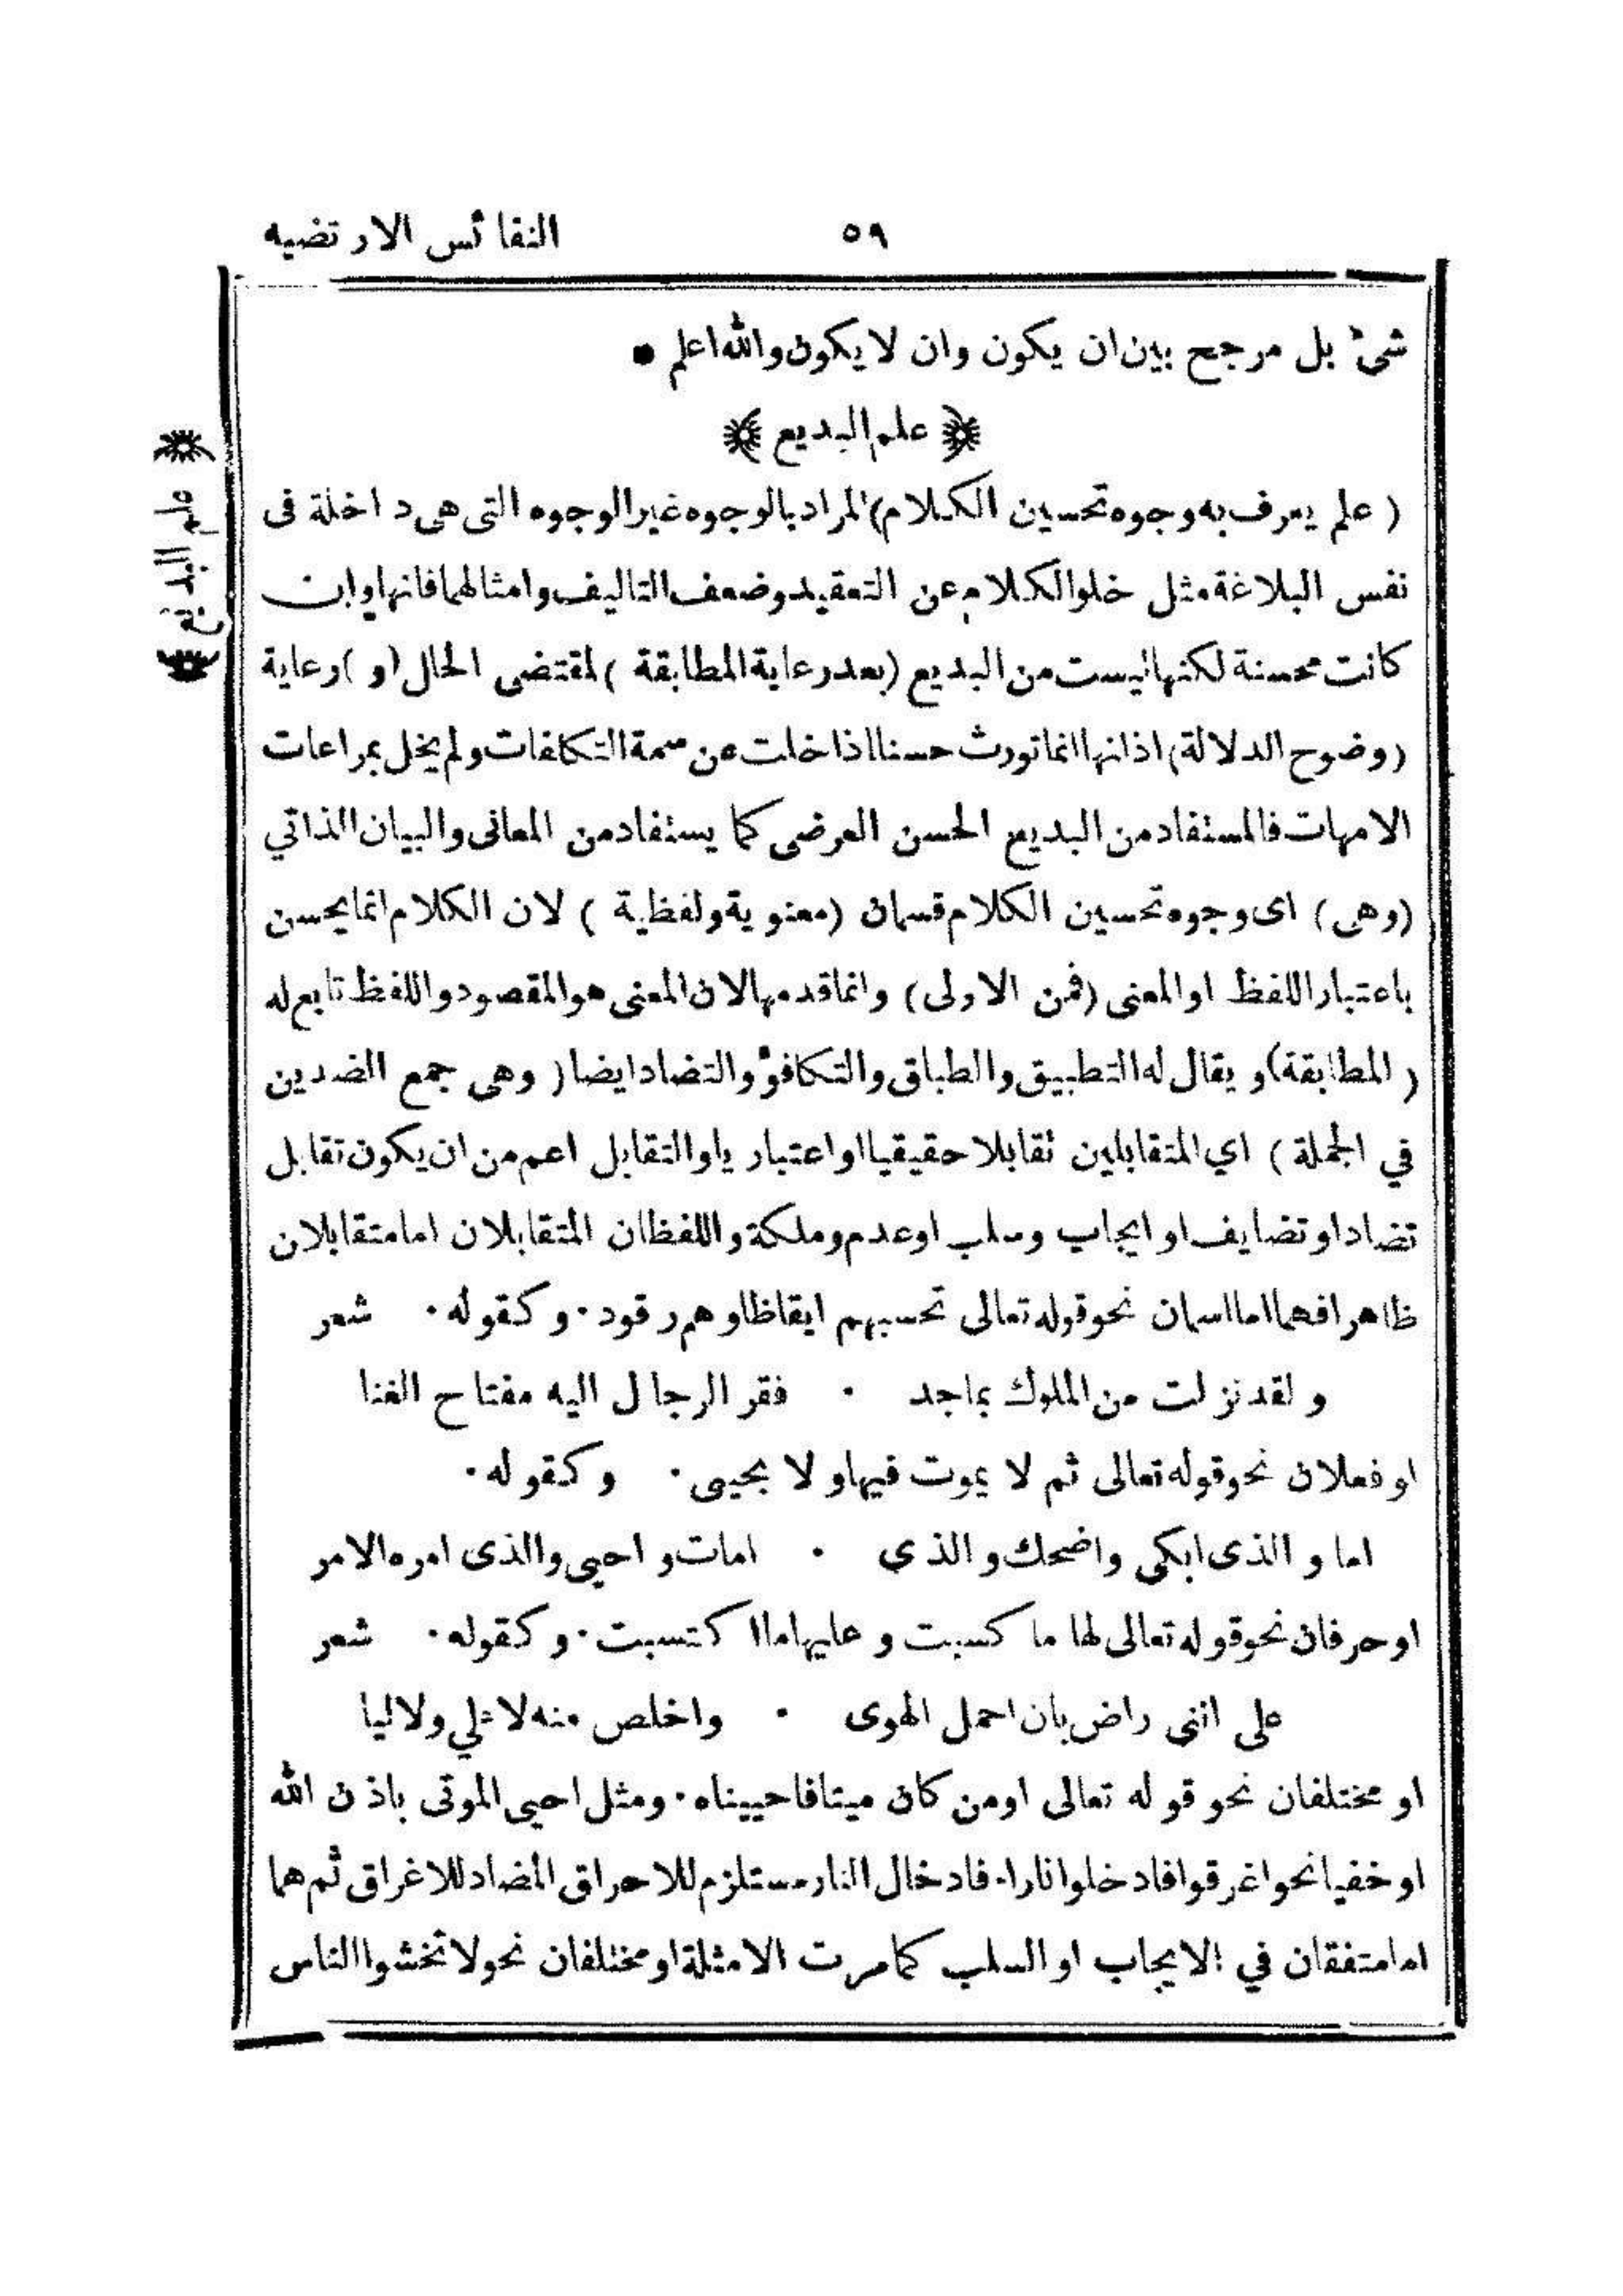 النفائس الارتضيه ٥٩
شئ بل مرجح بين ان يكون وان لا يكون والله اعلم •
﴿ علم البديع ﴾
﴿ علم البديع ﴾
( علم يعرف به وجوه تحسين الكلام ) المراد بالوجوه غير الوجوه التى هى داخلة فى
نفس البلاغة مثل خلو الكلام عن التعقيد وضعف التاليف وامثالهما فانها وان
كانت محسنة لكنها ليست من البديع ( بعد رعاية المطابقة ) لمقتضى الحال ( و ) رعاية
( وضوح الدلالة ) اذ انها انما تورث حسنا اذا خلت عن سمة التكلفات ولم يخل بمراعات
الامهات فالمستفاد من البديع الحسن العرضى كما يستفاد من المعانى والبيان الذاتي
( وهى ) اى وجوه تحسين الكلام قسمان ( معنوية ولفظية ) لان الكلام انما يحسن
باعتبار اللفظ او المعنى ( فمن الاولى ) وانما قدمها لان المعنى هو المقصود واللفظ تابع له
( المطابقة ) و يقال له التطبيق والطباق والتكافؤ والتضاد ايضا ( وهى جمع الضدين
في الجملة ) اي المتقابلين تقابلا حقيقيا او اعتبار يا والتقابل اعم من ان يكون تقابل
تضاد او تضايف او ايجاب وسلب او عدم وملكة واللفظان المتقابلان اما متقابلان
ظاهرا فهما اما اسمان نحو قوله تعالى تحسبهم ايقاظا وهم رقود ٠ و كقوله ٠ شعر
و لقد نزلت من الملوك بماجد ٠ فقر الرجال اليه مفتاح الغنا
او فعلان نحو قوله تعالى ثم لا يموت فيها و لا يحيى ٠ و كقوله ٠
اما و الذى ابكى واضحك و الذي ٠ امات و احيى والذى امره الامر
او حرفان نحو قوله تعالى لها ما كسبت و عليها ما اكتسبت ٠ و كقوله ٠ شعر
على اننى راض بان احمل الهوى ٠ واخلص منه لا علي ولا ليا
او مختلفان نحو قوله تعالى اومن كان ميتا فاحييناه ٠ ومثل احيى الموتى باذن الله
او خفيا نحو اغرقوا فادخلوا نارا ٠ فادخال النار مستلزم للاحراق المضاد للاغراق ثم هما
اما متفقان في الايجاب او السلب كما مرت الامثلة او مختلفان نحو لا تخشوا الناس